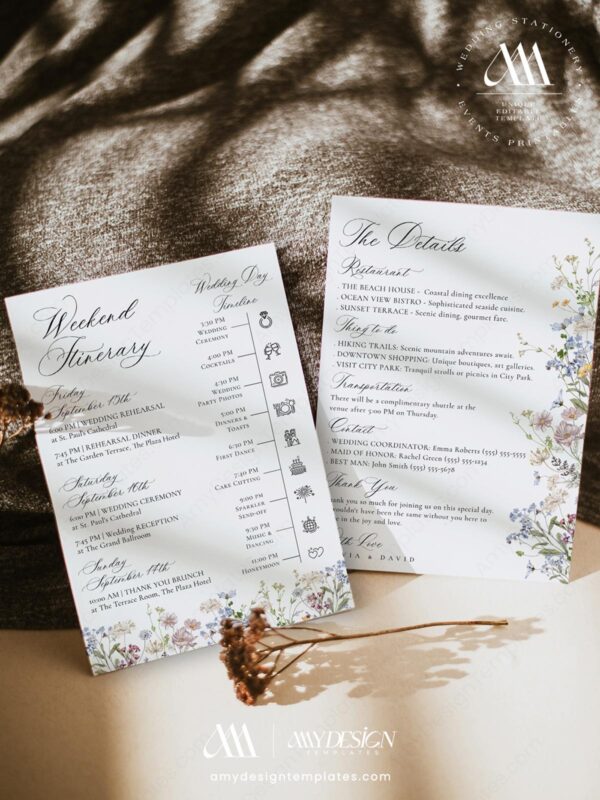 WEDDING STATIONERY
UNIQUE
EDITABLE
TEMPLATE
EVENTS PRINTABLES
Weekend
Itinerary
Friday
September 15th
6:00 PM | WEDDING REHEARSAL
at St. Paul's Cathedral
7:45 PM | REHEARSAL DINNER
at The Garden Terrace, The Plaza Hotel
Saturday
September 16th
6:00 PM | WEDDING CEREMONY
at St. Paul's Cathedral
7:45 PM | WEDDING RECEPTION
at The Grand Ballroom
Sunday
September 17th
10:00 AM | THANK YOU BRUNCH
at The Terrace Room, The Plaza Hotel
Wedding Day
Timeline
3:30 PM
WEDDING
CEREMONY
4:00 PM
COCKTAILS
4:30 PM
WEDDING
PARTY PHOTOS
5:00 PM
DINNERS &
TOASTS
6:30 PM
FIRST DANCE
7:30 PM
CAKE CUTTING
9:00 PM
SPARKLER
SEND-OFF
9:30 PM
MUSIC &
DANCING
11:00 PM
HONEYMOON
The Details
Restaurant
. THE BEACH HOUSE - Coastal dining excellence
. OCEAN VIEW BISTRO - Sophisticated seaside cuisine.
. SUNSET TERRACE - Scenic dining, gourmet fare.
Thing to do
. HIKING TRAILS: Scenic mountain adventures await.
. DOWNTOWN SHOPPING: Unique boutiques, art galleries.
. VISIT CITY PARK: Tranquil strolls or picnics in City Park.
Transportation
There will be a complimentary shuttle at the
venue after 5:00 PM on Thursday.
Contact
. WEDDING COORDINATOR: Emma Roberts (555) 555-5555
. MAID OF HONOR: Rachel Green (555) 555-1234
. BEST MAN: John Smith (555) 555-5678
Thank You
hank you so much for joining us on this special day.
ouldn't have been the same without you here to
e in the joy and love.
ith Love
IA & DAVID
AMYDESIGN
TEMPLATES
amydesigntemplates.com